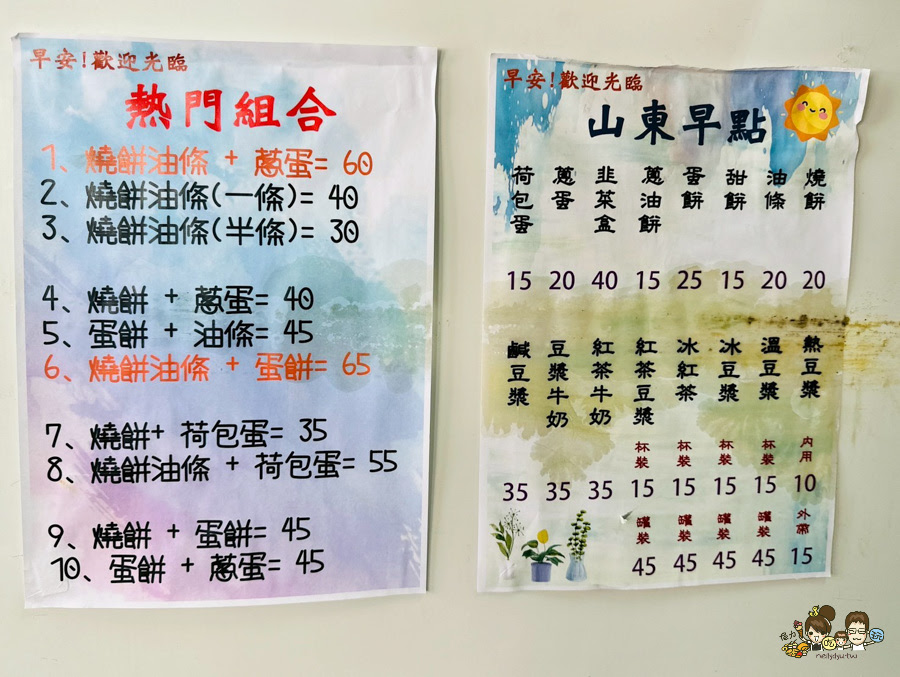 早安!歡迎光臨
熱門組合
1、燒餅油條 + 蔥蛋= 60
2、燒餅油條(一條)= 40
3、燒餅油條(半條)= 30
4、燒餅 + 蔥蛋= 40
5、蛋餅 + 油條= 45
6、燒餅油條 + 蛋餅= 65
7、燒餅+ 荷包蛋= 35
8、燒餅油條 + 荷包蛋= 55
9、燒餅 + 蛋餅= 45
10、蛋餅 + 蔥蛋= 45
早安!歡迎光臨
山東早點
燒餅
油條
甜餅
蛋餅
蔥油餅
韭菜盒
蔥蛋
荷包蛋
15 20 40 15 25 15 20 20
熱豆漿
溫豆漿
冰豆漿
冰紅茶
紅茶豆漿
紅茶牛奶
豆漿牛奶
鹹豆漿
杯裝 杯裝 杯裝 杯裝 內用
35 35 35 15 15 15 15 10
罐裝 罐裝 罐裝 罐裝 外帶
45 45 45 45 15
nellydyu.tw